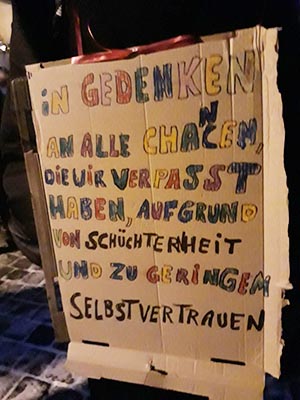 iN GEDENKEN
AN ALLE CHANCEN,
DIE WIR VERPASST
HABEN, AUFGRUND
VON SCHÜCHTERHEIT
UND ZU GERINGEM
SELBSTVERTRAUEN